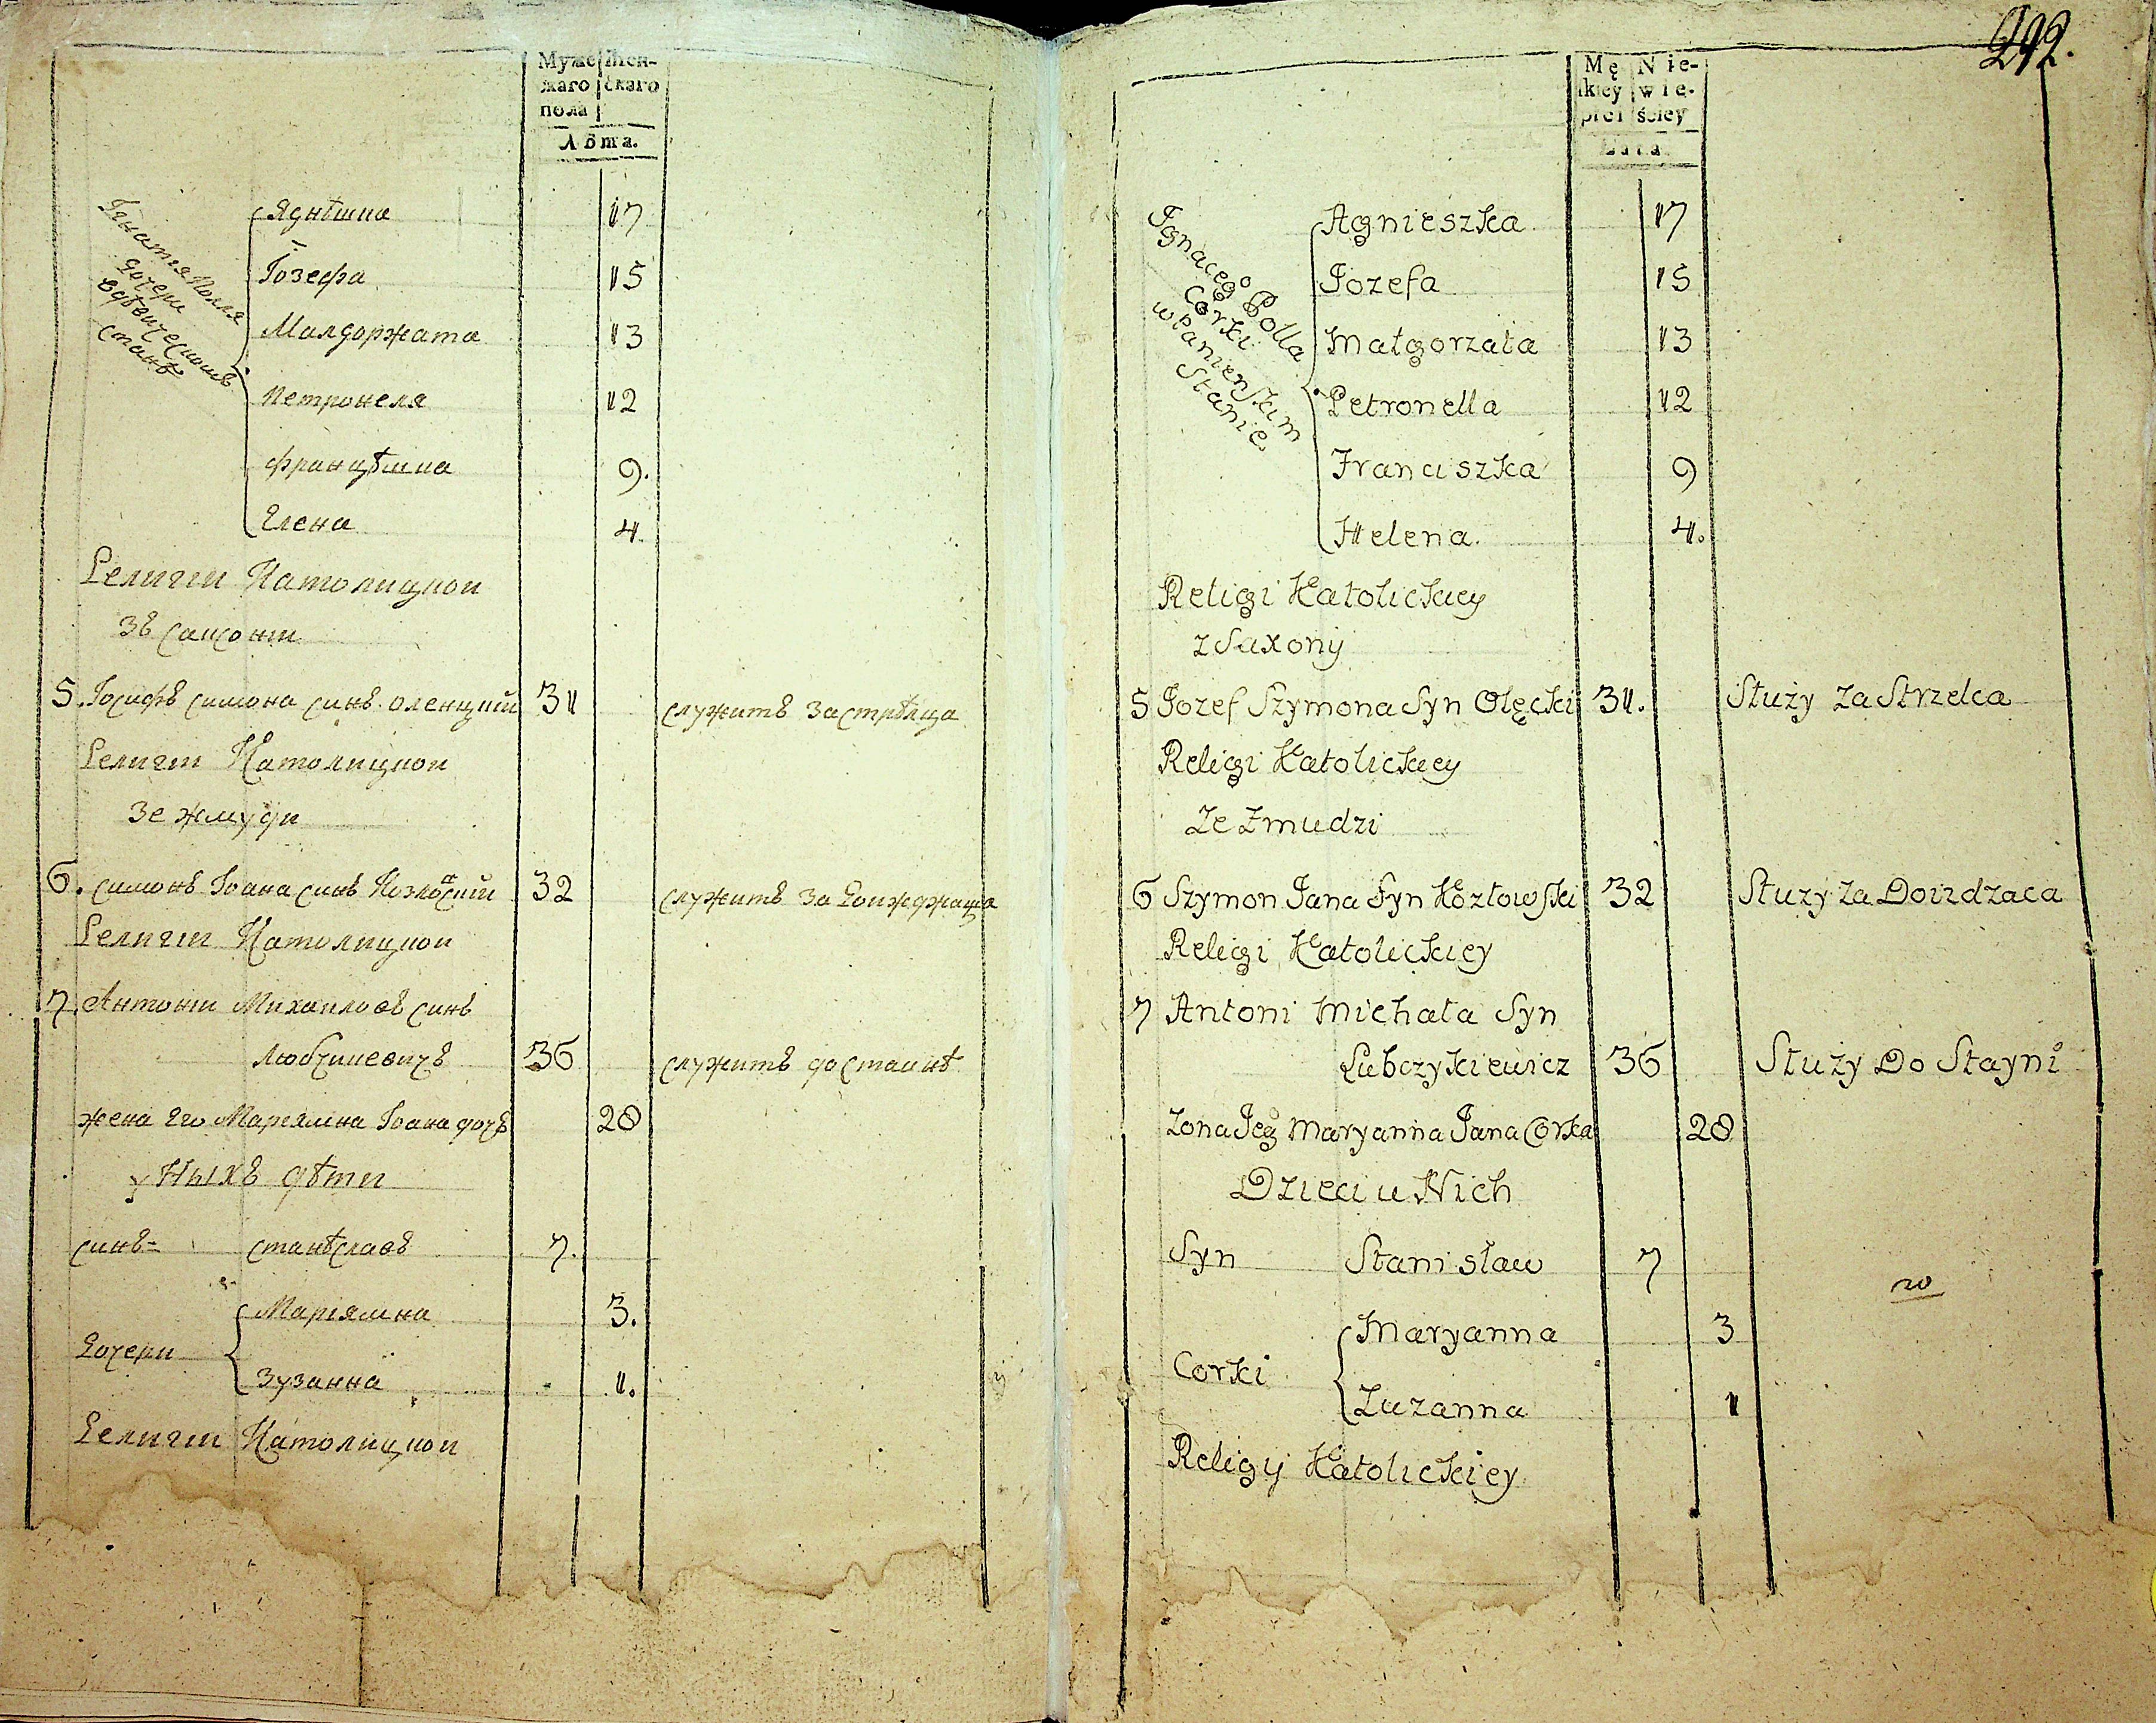 Муже- Жен-
жаго скаго
пола
Лѣта.
Игнатія Полля
дочери
въ дѣвическомъ
станѣ
Ягнѣшка 17
Іозефа 15
Малгоржата 13
Петронеля 12
Францѣшка 9.
Елена 4.
Религіи Католицкой
зъ Саксоніи
5. Іосифъ Симона синъ Оленцкий 31 служитъ за стрѣлца
Религіи Католицкой
зе Жмуди
6. Симонъ Іоана синъ Козловский 32 служитъ за Доижджаща
Религіи Католицкой
7. Антоній Михаиловъ синъ
Любчикевичъ 36 служитъ до стайнѣ
жена Его Маріянна Іоана дочь 28
у Ныхъ дѣти
синъ= Станѣславъ 7.
Дочери
Маріянна 3.
Зузанна 1.
Религіи Католицкой
292.
Mę Nie-
skiey wie-
płci ściey
Lata
Ignacego Polla
Corki
w Panienskim
Stanie.
Agnieszka 17
Jozefa 15
Małgorzata 13
Petronella 12
Franciszka 9
Helena. 4.
Religi Katolickiey
z Saxony
5 Jozef Szymona Syn Olęcki 31. Służy za Strzelca
Religi Katolickiey
Ze Zmudzi
6 Szymon Jana Syn Kozłowski 32 Służy za Doizdzaca
Religi Katolickiey
7 Antoni Michała Syn
Lubczykiewicz 36 Służy Do Stayni
Zona Jeg Maryanna Jana Corka 28
Dzieci u Nich
Syn Stanisław 7
Corki
Maryanna 3
Zuzanna 1
Religy Katolickiey